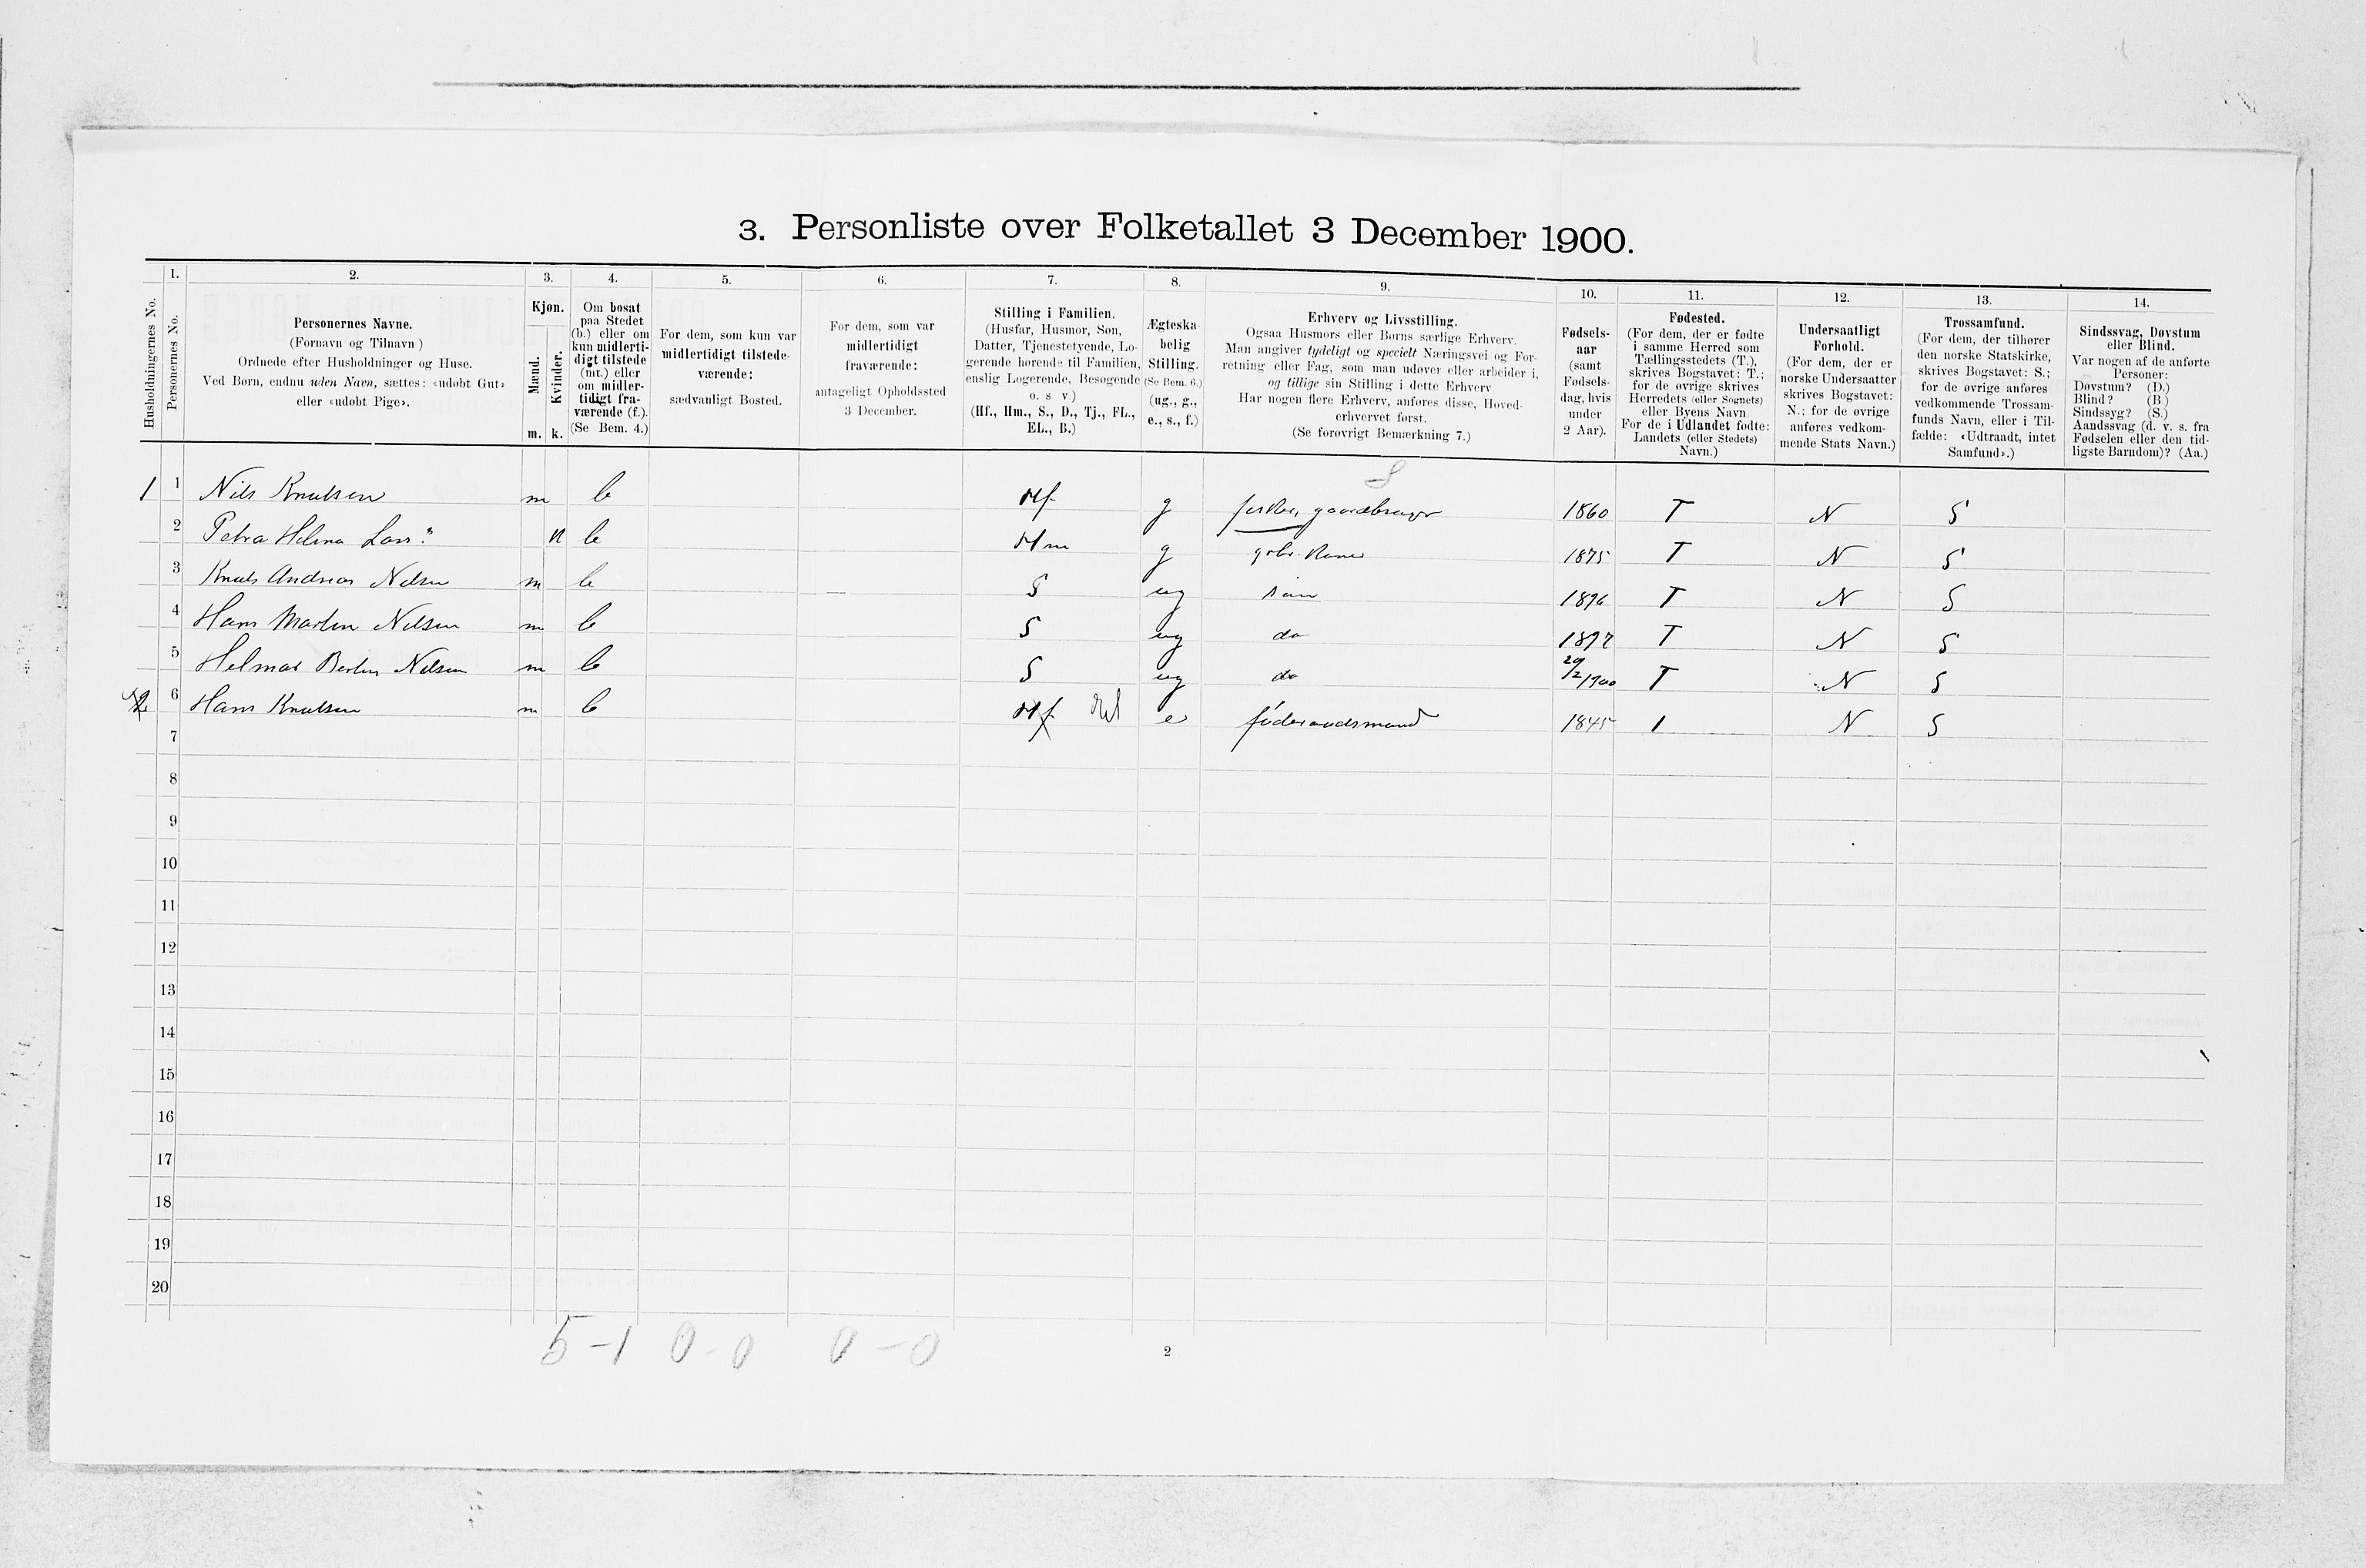 3. Personliste over Folketallet 3 December 1900.
Husholdningernes No.
1.
Personernes No.
2.
Personernes Navne.
(Fornavn og Tilnavn)
Ordnede efter Husholdninger og Huse.
Ved Børn, endnu uden Navn, sættes: «udøbt Gut»
eller «udøbt Pige».
3.
Kjøn.
Mænd.
Kvinder.
m. k.
4.
Om bosat
paa Stedet
(b.) eller om
kun midlerti-
digt tilstede
(mt.) eller
om midler-
tidigt fra-
værende (f.).
(Se Bem. 4.)
5.
For dem, som kun var
midlertidigt tilstede-
værende:
sædvanligt Bosted.
6.
For dem, som var
midlertidigt
fraværende:
antageligt Opholdssted
3 December.
7.
Stilling i Familien.
(Husfar, Husmor, Søn,
Datter, Tjenestetyende, Lo-
gerende hørende til Familien,
enslig Logerende, Besøgende
o. s v)
(Hf., Hm., S., D., Tj., FL.,
EL., B.)
8.
Ægteska-
belig
Stilling.
(Se Bem. 6.)
(ug., g.,
e., s., f.)
9.
Erhverv og Livsstilling.
Ogsaa Husmors eller Børns særlige Erhverv.
Man angiver tydeligt og specielt Næringsvei og For-
retning eller Fag, som man udøver eller arbeider i,
og tillige sin Stilling i dette Erhverv.
Har nogen flere Erhverv, anføres disse, Hoved-
erhvervet først.
(Se forøvrigt Bemærkning 7.)
10.
Fødsels-
aar
(samt
Fødsels-
dag, hvis
under
2 Aar).
11.
Fødested.
(For dem, der er fødte
i samme Herred som
Tællingsstedets (T.),
skrives Bogstavet: T.;
for de øvrige skrives
Herredets (eller Sognets)
eller Byens Navn
For de i Udlandet fødte:
Landets (eller Stedets)
Navn.)
12.
Undersaatligt
Forhold.
(For dem, der er
norske Undersaatter
skrives Bogstavet:
N.; for de øvrige
anføres vedkom-
mende Stats Navn.)
13.
Trossamfund.
(For dem, der tilhører
den norske Statskirke,
skrives Bogstavet: S.;
for de øvrige anføres
vedkommende Trossam-
funds Navn, eller i Til-
fælde: «Udtraadt, intet
Samfund».)
14.
Sindssvag, Døvstum
eller Blind.
Var nogen af de anførte
Personer:
Døvstum? (D.)
Blind? (B.)
Sindssyg? (S.)
Aandssvag (d. v. s. fra
Fødselen eller den tid-
ligste Barndom)? (Aa.)
1 1 Nils Knutsen m b Hf g fisker, gaardbruger 1860 T N S
2 Petra Helena Lars." k b Hm g gbr. kone 1875 T N S
3 Knut Andreas Nilsen m b S ug søn 1896 T N S
4 Hans Martin Nilsen m b S ug do 1897 T N S
5 Helmar Nilsen m b S ug do 29/2 1900 T N S
6 Hans Knutsen m b Hf e føderaadsmand 1845 N S
7
8
9
10
11
12
13
14
15
16
17
18
19
20
5-1 0-0 0-0
2